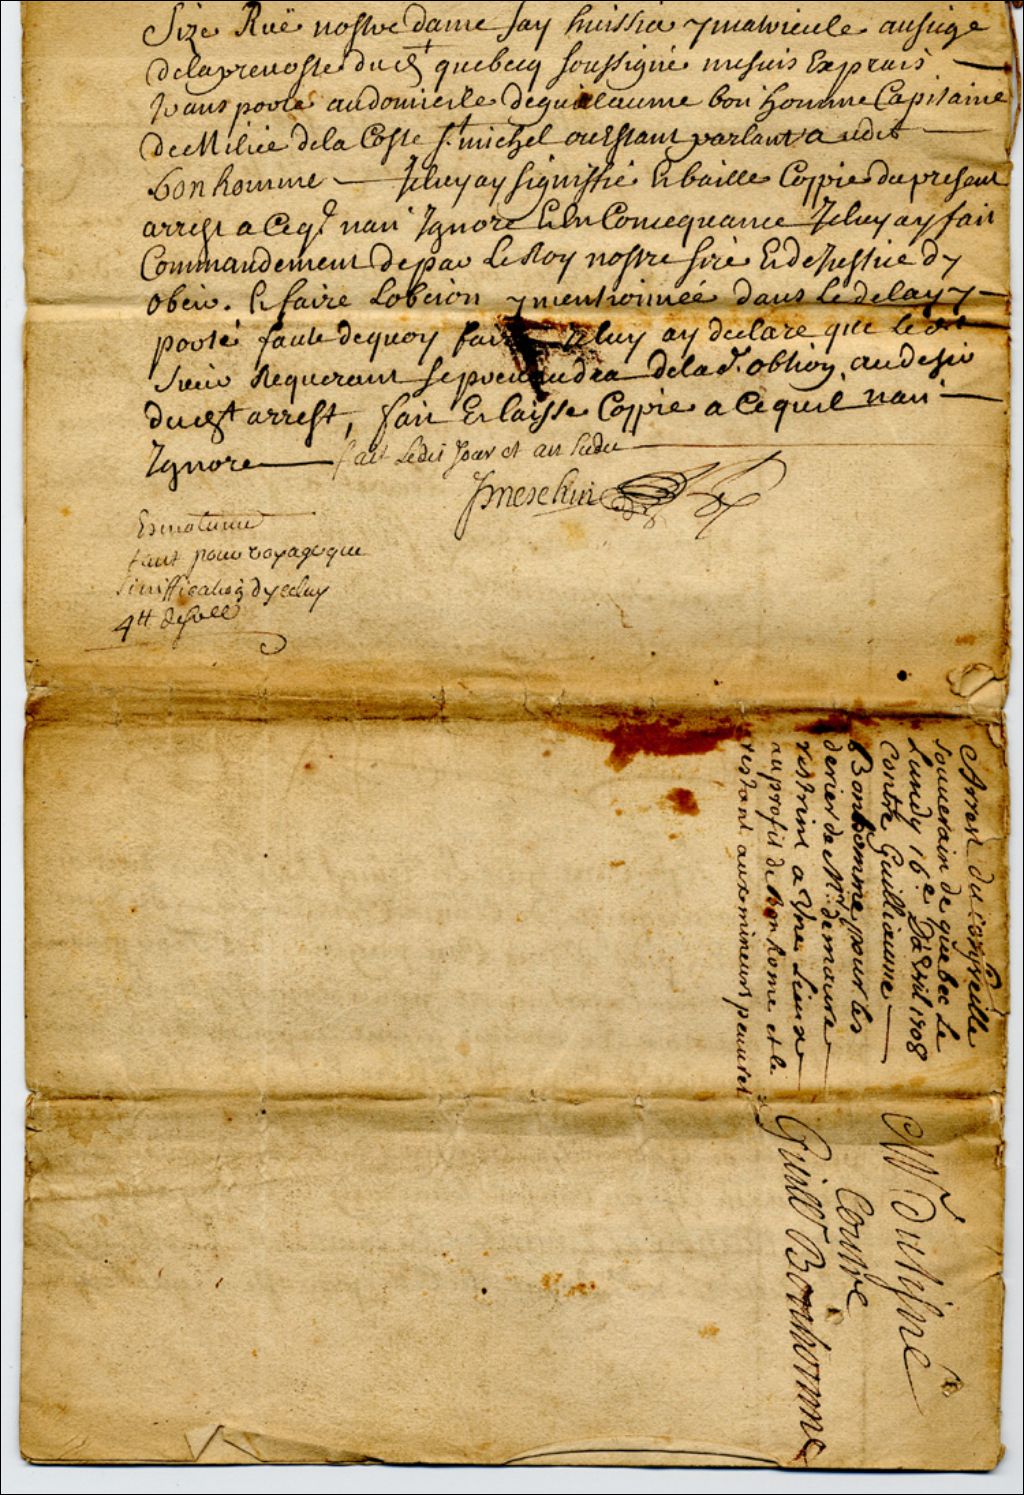 Size Ruë nostre dame Jay huissier ymatricule ausiege
delaprevoste dud quebecq soussigné mesuis Exprais
transporté audomicile deguilaume bon homme Capitaine
demilice dela Coste St. michel ouEstant parlant a udit
bonhomme Jeluy ay signiffié Et baillé Coppie dupresent
arrest a Ceql nan Ignore Et En Consequance Jeluy ay fait
Commandement depar LeRoy nostre sire Et deJustice dy
obeir. Et faire Lobeion ymentionnée dans Le delay y
porté faute dequoy faire Jeluy ay declare que Led
sieur Requerant sepourvoudra delad. obtion, audesir
dudt arrest, fait Et laissé Coppie a Cequil nan
Ignore fait Ledit Jour et an susdit
Jmeschin
Esmolument
tant pour voyage que
siniffication dyceluy
4tt
Arrest du Conseille
souuerain de quebec Le
Lundy 16e D'avril 1708
Contre Guilliaume
Bonhomme pour les
derier de Mr. demaure
restrint a Vne Lieux
au profit de Bonhome et le
restant aux mineurs pauuret
Mr dutisné
Contre
Guill Bonhomme